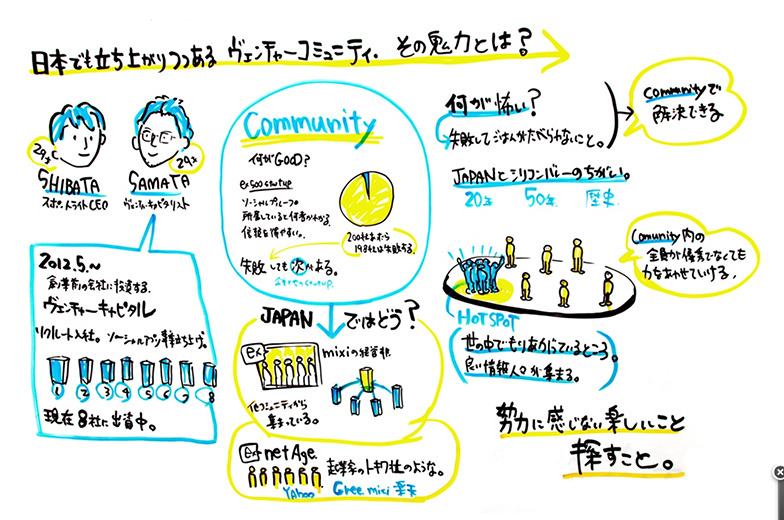 日本でも立ち上がりつつある ヴェンチャーコミュニティ. その魅力とは?
29才
SHIBATA
スポットライトCEO
29才
SAMATA
ヴェンチャーキャピタリスト
2012.5.~
創業前の会社に投資する.
ヴェンチャーキャピタル
リクルート入社。ソーシャルアプリ事業立ち上げ。
1 2 3 4 5 6 7 8
現在8社に出資中。
Community
何がGOOD?
ex 500 startup
ソーシャルプルーフ。
所属していると何者かわかる。
信頼を得やすい。
200社あったら
198社は失敗する.
失敗しても次がある。
JAPANではどう?
ex mixiの経営者
他コミュニティから
集まっている。
ex netAge 起業家のトキワ荘のような。
Yahoo Gree mixi 楽天
何が怖い?
失敗してごはんがたべられないこと。
Communityで
解決できる
JAPANとシリコンバレーのちがい。
20年 50年 歴史
Comunity内の
全員が優秀でなくても
力をあわせていける.
HOTSPOT
世の中でもりあがっているところ。
良い情報人が集まる。
努力に感じない楽しいこと
探すこと。